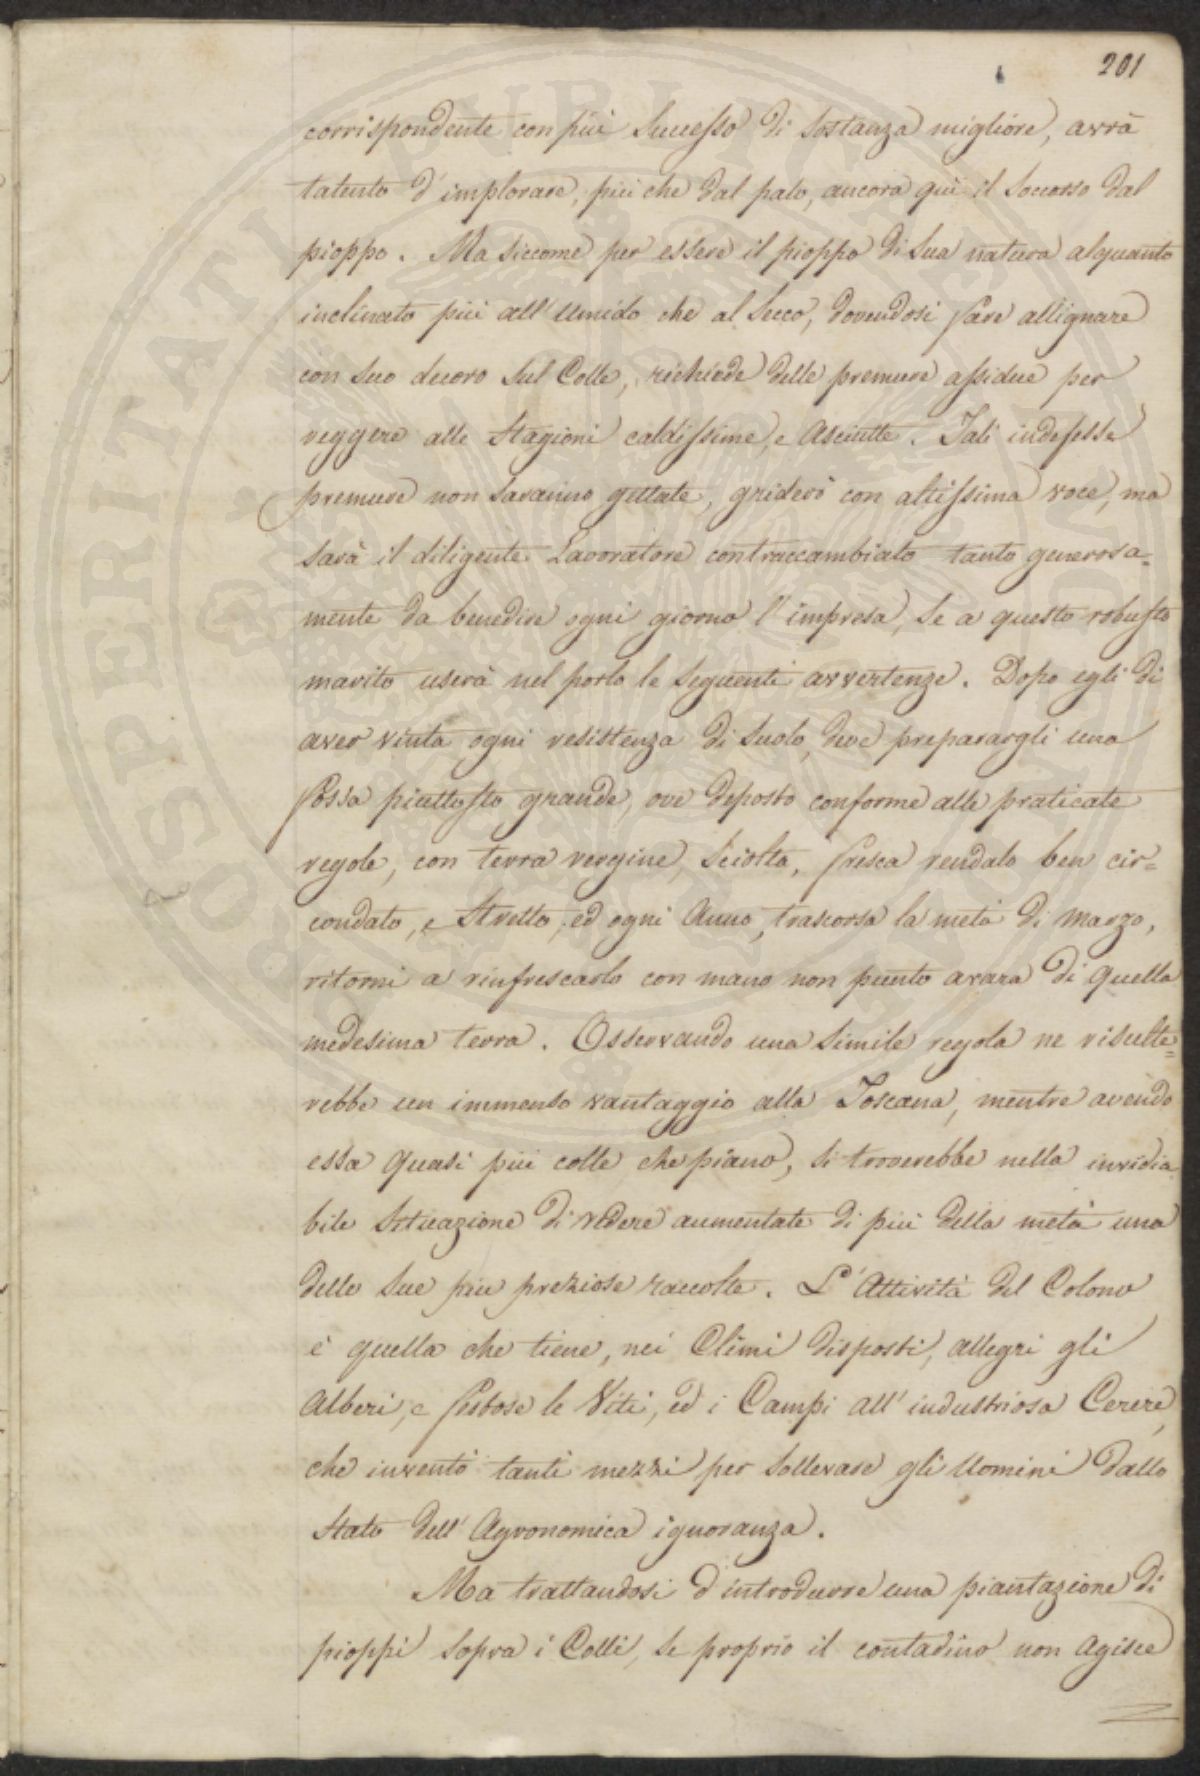 201
corrispondente con più Successo di Sostanza migliore, avrà
talento d'implorare, più che dal palo, ancora quì il Soccorso dal
pioppo. Ma Siccome per essere il pioppo di Sua natura alquanto
inclinato più all'Umido che al Secco, dovendosi fare allignare
con Suo decoro Sul Colle, richiede delle premure assidue per
reggere alle Stagioni caldissime, e Asciutte. Tali indefesse
premure non Saranno gettate, griderò con altissima voce, ma
Sarà il diligente Lavoratore contraccambiato tanto generosa=
mente da benedire ogni giorno l'impresa, Se a questo robusto
marito userà nel porlo le Seguenti avvertenze. Dopo egli di
aver vinta ogni resistenza di Suolo, deve preparargli una
fossa piuttosto grande, ove deposto conforme alle praticate
regole, con terra vergine, Sciolta, fresca rendalo ben cir=
condato, e Stretto, ed ogni Anno, trascorsa la metà di Marzo,
ritorni a rinfrescarlo con mano non punto avara di quella
medesima terra. Osservando una Simile regola ne risulte=
rebbe un immenso vantaggio alla Toscana, mentre avendo
essa quasi più colle che piano, Si troverebbe nella invidia
bile Situazione di vedere aumentate di più della metà una
delle Sue più preziose raccolte. L'Attività del Colono
è quella che tiene, nei Climi disposti, allegri gli
Alberi, e festose le Viti, ed i Campi all'industriosa Cerere,
che inventò tanti mezzi per Sollevare gli Uomini dallo
Stato dell'Agronomica ignoranza.
Ma trattandosi d'introdurre una piantazione di
pioppi Sopra i Colli, Se proprio il contadino non Agisce
PROSPERITATI PUBLICAE AUGENDAE